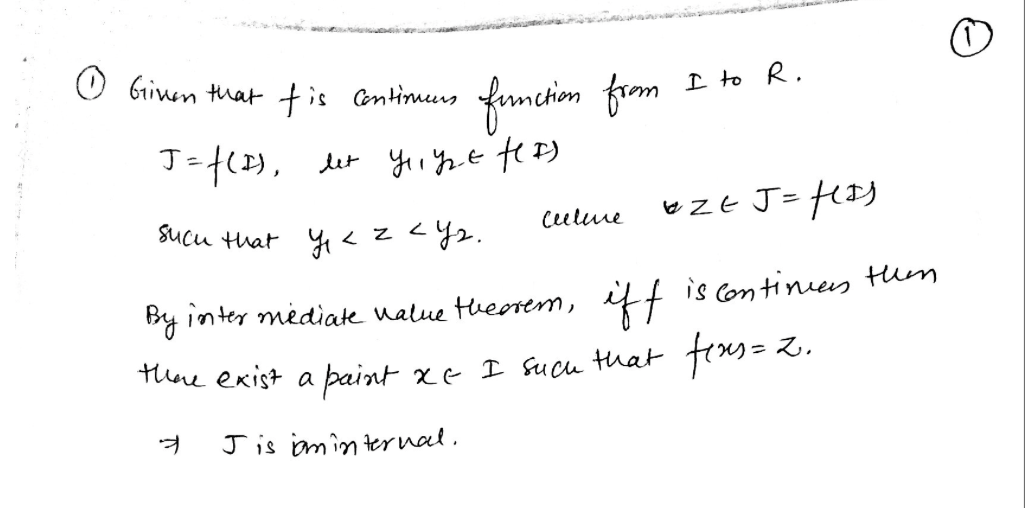 ①
① Given that f is continuous function from I to R.
J = f(I), let y₁, y₂ ∈ f(I)
such that y₁ < z < y₂. z ∈ J = f(I)
By intermediate value theorem, if f is continues then
there exist a paint x ∈ I such that f(x) = z.
⇒ J is an interval.